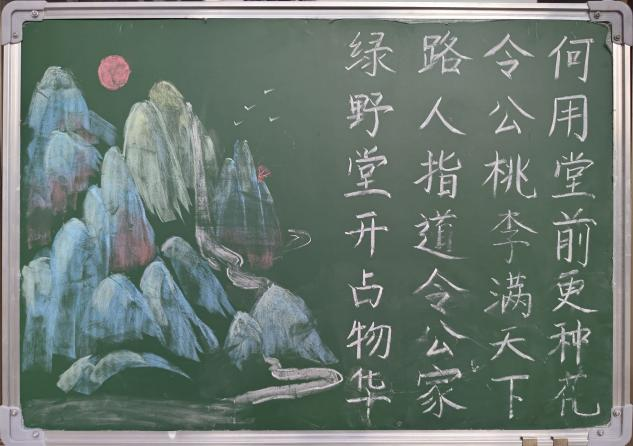 绿野堂开占物华
路人指道令公家
令公桃李满天下
何用堂前更种花